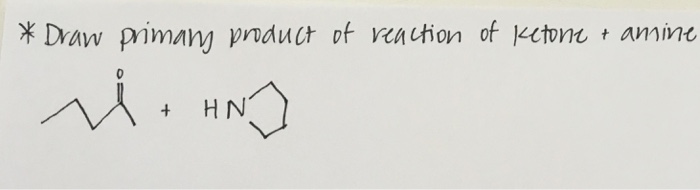 * Draw primary product of reaction of ketone + amine
O
+ HN